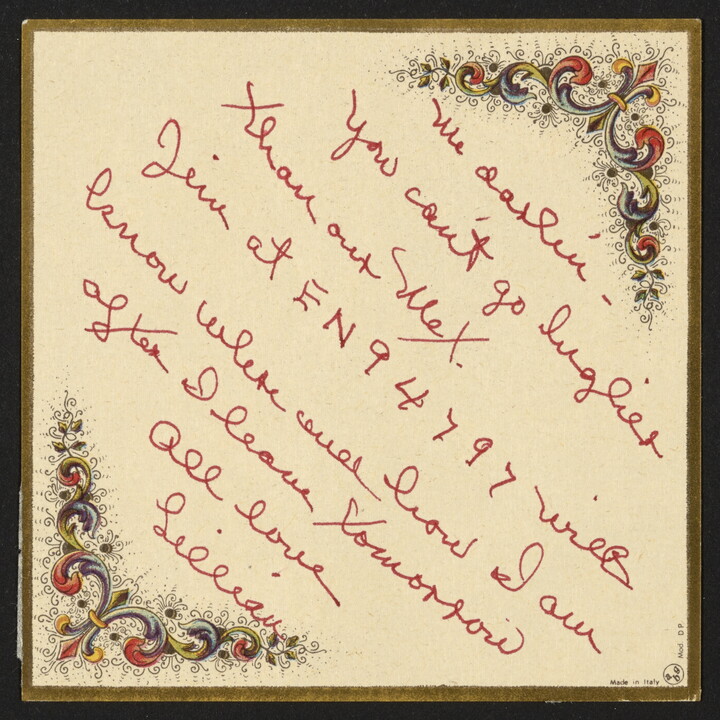 Me darlin -
You can't go higher
than our Met.
Jim at EN 9 4797 will
know where and how I am
after I leave tomorrow
All love
Lillian
Made in Italy
Mod. D.P.